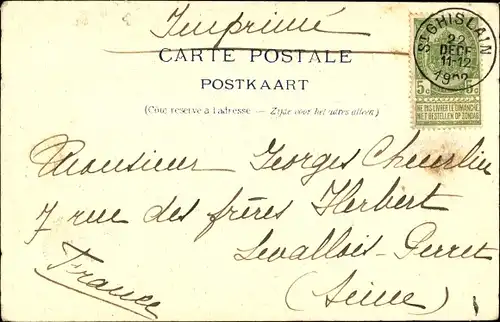 Imprimé
CARTE POSTALE
POSTKAART
(Côté réservé à l'adresse. — Zijde voor het adres alleen)
ST GHISLAIN
22
DECE
11-12
5c 5c
NE PAS LIVRER LE DIMANCHE
NIET BESTELLEN OP ZONDAG
Monsieur Georges
7 rue des frères Herbert
Levallois-Perret
France (Seine)